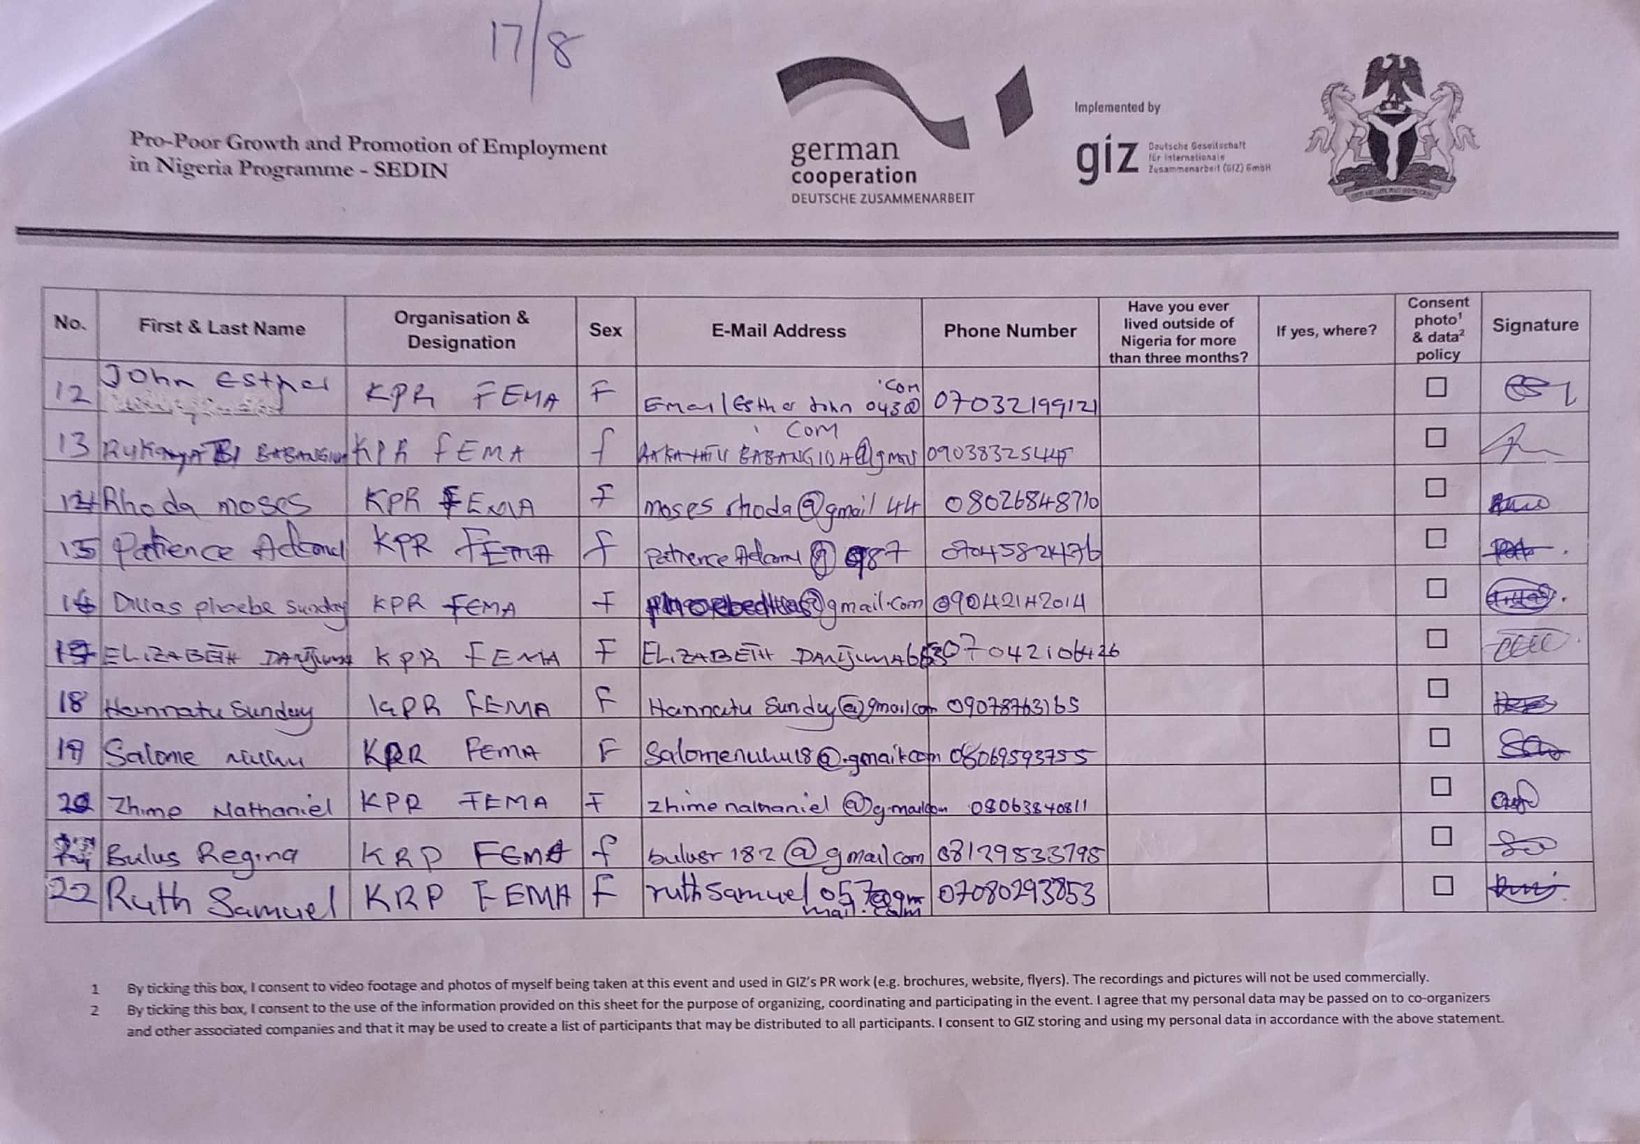 17/8
Pro-Poor Growth and Promotion of Employment
in Nigeria Programme - SEDIN
german
cooperation
DEUTSCHE ZUSAMMENARBEIT
Implemented by
giz Deutsche Gesellschaft
für Internationale
Zusammenarbeit (GIZ) GmbH
No. First & Last Name Organisation & Designation Sex E-Mail Address Phone Number Have you ever lived outside of Nigeria for more than three months? If yes, where? Consent photo¹ & data² policy Signature
12 John Esther KPR FEMA F Email Esther John 043@ .com 07032199121
13 KPR FEMA f BABANGIDA@gmail .com
14 Rhoda moses KPR FEMA F moses rhoda@gmail 44 08026848710
15 Patience KPR FEMA f Patience @ 987
16 Dllas phoebe Sunday KPR FEMA F @gmail.com 09042142014
17 ELIZABETH DANJUMA KPR FEMA F ELIZABETH DANJUMA
18 Hannatu Sunday KPR FEMA F Hannatu Sundy@gmailcom 09078763165
19 Salome nuhu KPR FEMA F Salomenuhu18@.gmailcom 08069593755
20 Zhime Nathaniel KPR FEMA F zhimenathaniel@gmailcom 08063840811
Bulus Regina KRP FEMA f bulusr182@gmailcom 08129533798
22 Ruth Samuel KRP FEMA F ruthsamuel057@gmmail.com 07080293853
1 By ticking this box, I consent to video footage and photos of myself being taken at this event and used in GIZ's PR work (e.g. brochures, website, flyers). The recordings and pictures will not be used commercially.
2 By ticking this box, I consent to the use of the information provided on this sheet for the purpose of organizing, coordinating and participating in the event. I agree that my personal data may be passed on to co-organizers
and other associated companies and that it may be used to create a list of participants that may be distributed to all participants. I consent to GIZ storing and using my personal data in accordance with the above statement.